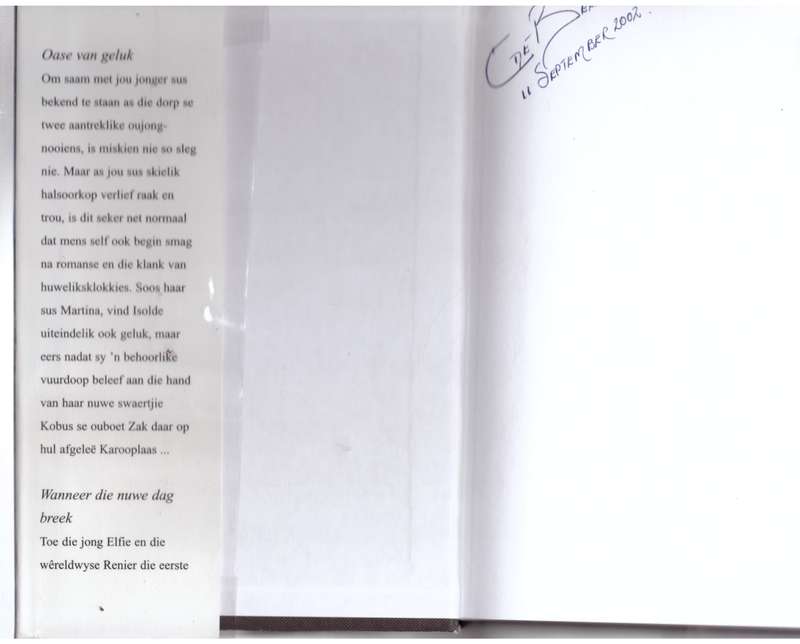 Oase van geluk
Om saam met jou jonger sus
bekend te staan as die dorp se
twee aantreklike oujong-
nooiens, is miskien nie so sleg
nie. Maar as jou sus skielik
halsoorkop verlief raak en
trou, is dit seker net normaal
dat mens self ook begin smag
na romanse en die klank van
huweliksklokkies. Soos haar
sus Martina, vind Isolde
uiteindelik ook geluk, maar
eers nadat sy 'n behoorlike
vuurdoop beleef aan die hand
van haar nuwe swaertjie
Kobus se ouboet Zak daar op
hul afgeleë Karooplaas ...
Wanneer die nuwe dag
breek
Toe die jong Elfie en die
wêreldwyse Renier die eerste
11 SEPTEMBER 2002.